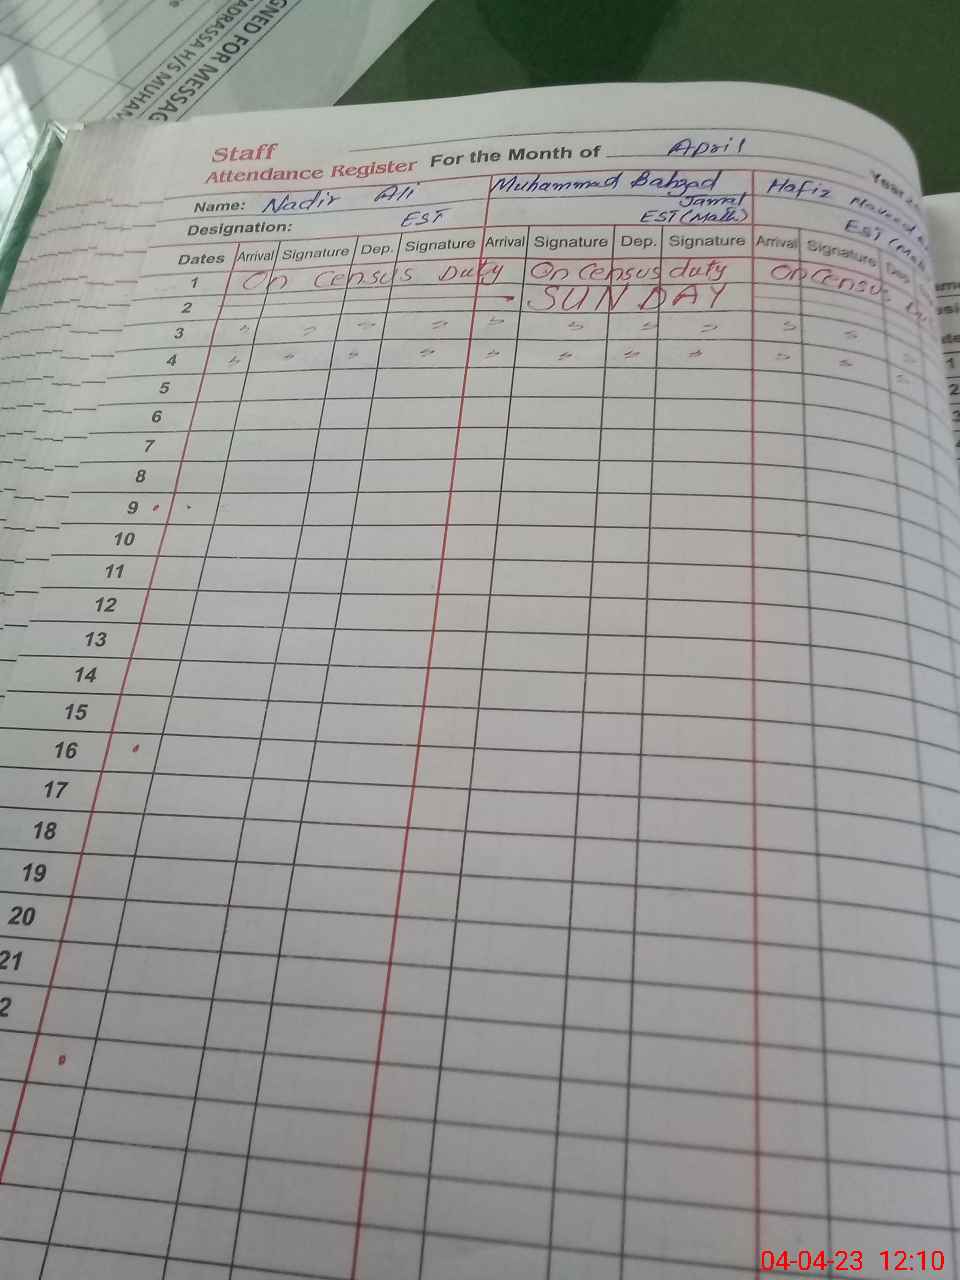 GNED FOR MESSAG
ADRASSA H/S MUHAM
Staff
Attendance Register For the Month of April
Year
Name: Nadir Ali Muhammad Bahzad Jamal Hafiz Naveed
Designation: EST EST (Math) EST (Math
Dates Arrival Signature Dep. Signature Arrival Signature Dep. Signature Arrival Signature Dep.
1 On Census Duty On Census duty On Census
2 - SUNDAY
3 " " " " " " " " " "
4 " " " " " " " " " " "
5
6
7
8
9
10
11
12
13
14
15
16
17
18
19
20
21
2
04-04-23 12:10